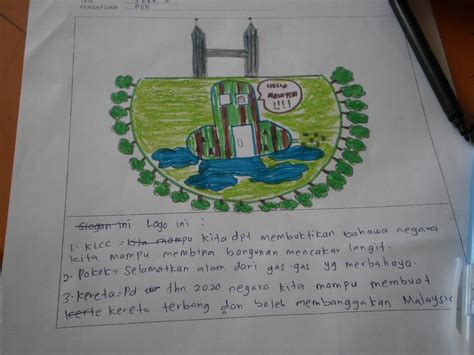 PERSATUAN : PSK
HELLO
MALAYSIA
!!!!
Slogan ini Logo ini :
1. KLCC = kita mampu kita dpt membuktikan bahawa negara
kita mampu membina bangunan mencakar langit.
2. Pokok = Selamatkan alam dari gas-gas yg merbahaya.
3. kereta = Pd thn 2020 negara kita mampu membuat
kereta terbang dan boleh membanggakan Malaysia